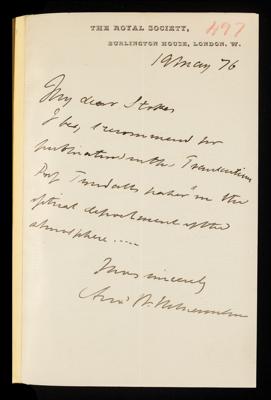 THE ROYAL SOCIETY,
BURLINGTON HOUSE, LONDON, W.
497
19 May 76
My dear Stokes
I beg to recommend for
publication in the Transactions
Prof Tyndall's paper "on the
optical deportment of the
atmosphere .....
Yours sincerely